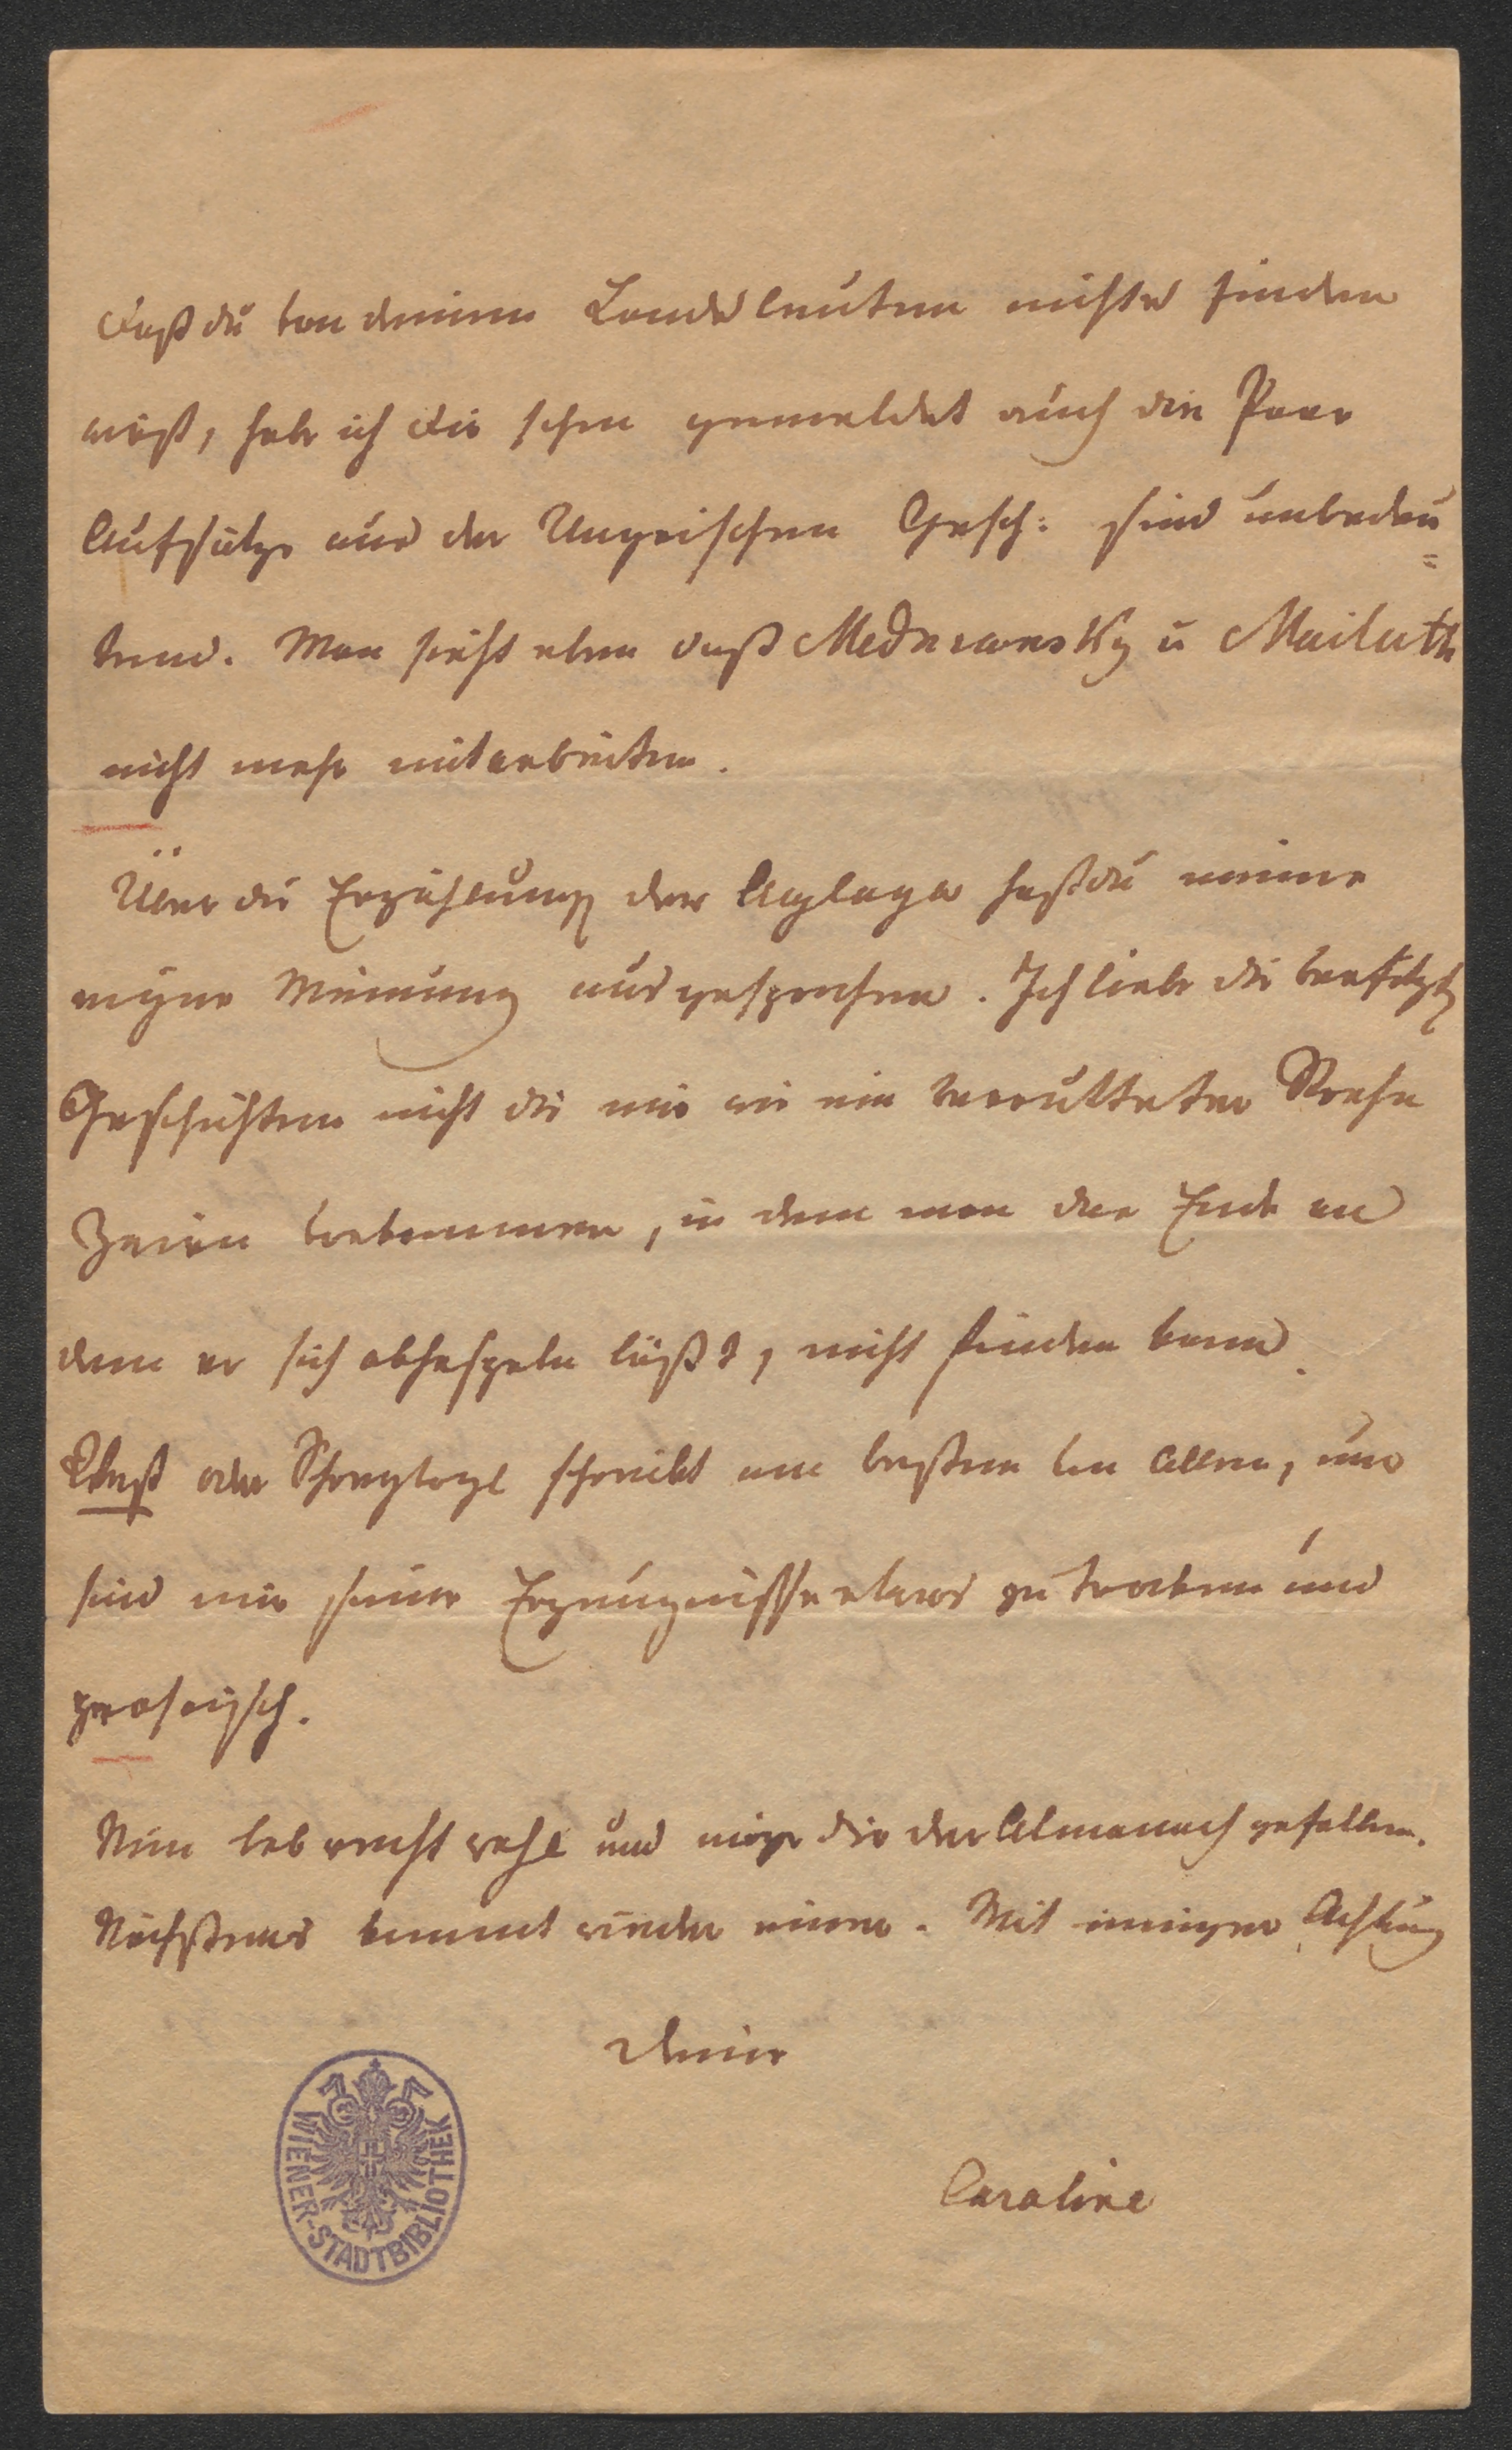 daß du von deinen Landsleuten nichts finden
wirst, habe ich dir schon gemeldet auch die Paar
Aufsätze aus der Ungrischen Gesch: sind unbedeu
=
tend. Man sieht eben daß Mednÿansky u Mailath
nicht mehr mitarbeiten.
Über die Erzählung der Aglaja hast du meine
eigne Meinung ausgesprochen. Ich liebe die
Geschichten nicht die mir wie ein Strehn
Zwirn vorkommen, in dem man das Ende an
dem er sich abhaspeln läßt, nicht finden kann.
schreibt am besten von Allen, nur
sind mir seine Erzeugnisse etwas zu trocken und
prosaisch.
Nun leb recht wohl und möge dir der Almanach gefallen.
Nächstens kommt wieder einer. Mit inniger Achtung
Deine
Caroline
WIENER-STADTBIBLIOTHEK